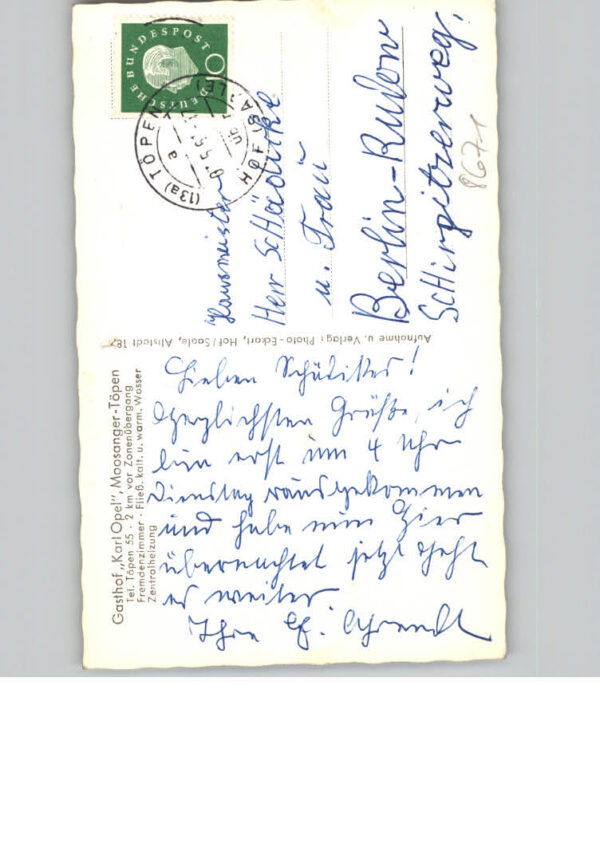 Gasthof „Karl Opel", Moosanger-Töpen
Tel. Töpen 55 · 2 km vor Zonenübergang
Fremdenzimmer · Fließ. kalt. u. warm. Wasser
Zentralheizung
Lieben Schädikes!
Herzlichsten Grüße, ich
bin erst um 4 Uhr
Dienstag rausgekommen
und habe nun hier
übernachtet jetzt geht
es weiter
Ihre
Aufnahme u. Verlag: Photo-Eckart, Hof/Saale, Altstadt
DEUTSCHE BUNDESPOST
10
(13a) TÖPEN
HOF (SAALE)
a
Hausmeister
Herr Schädicke
u. Frau
Berlin-Rudow
Schirpitzerweg,
867-1